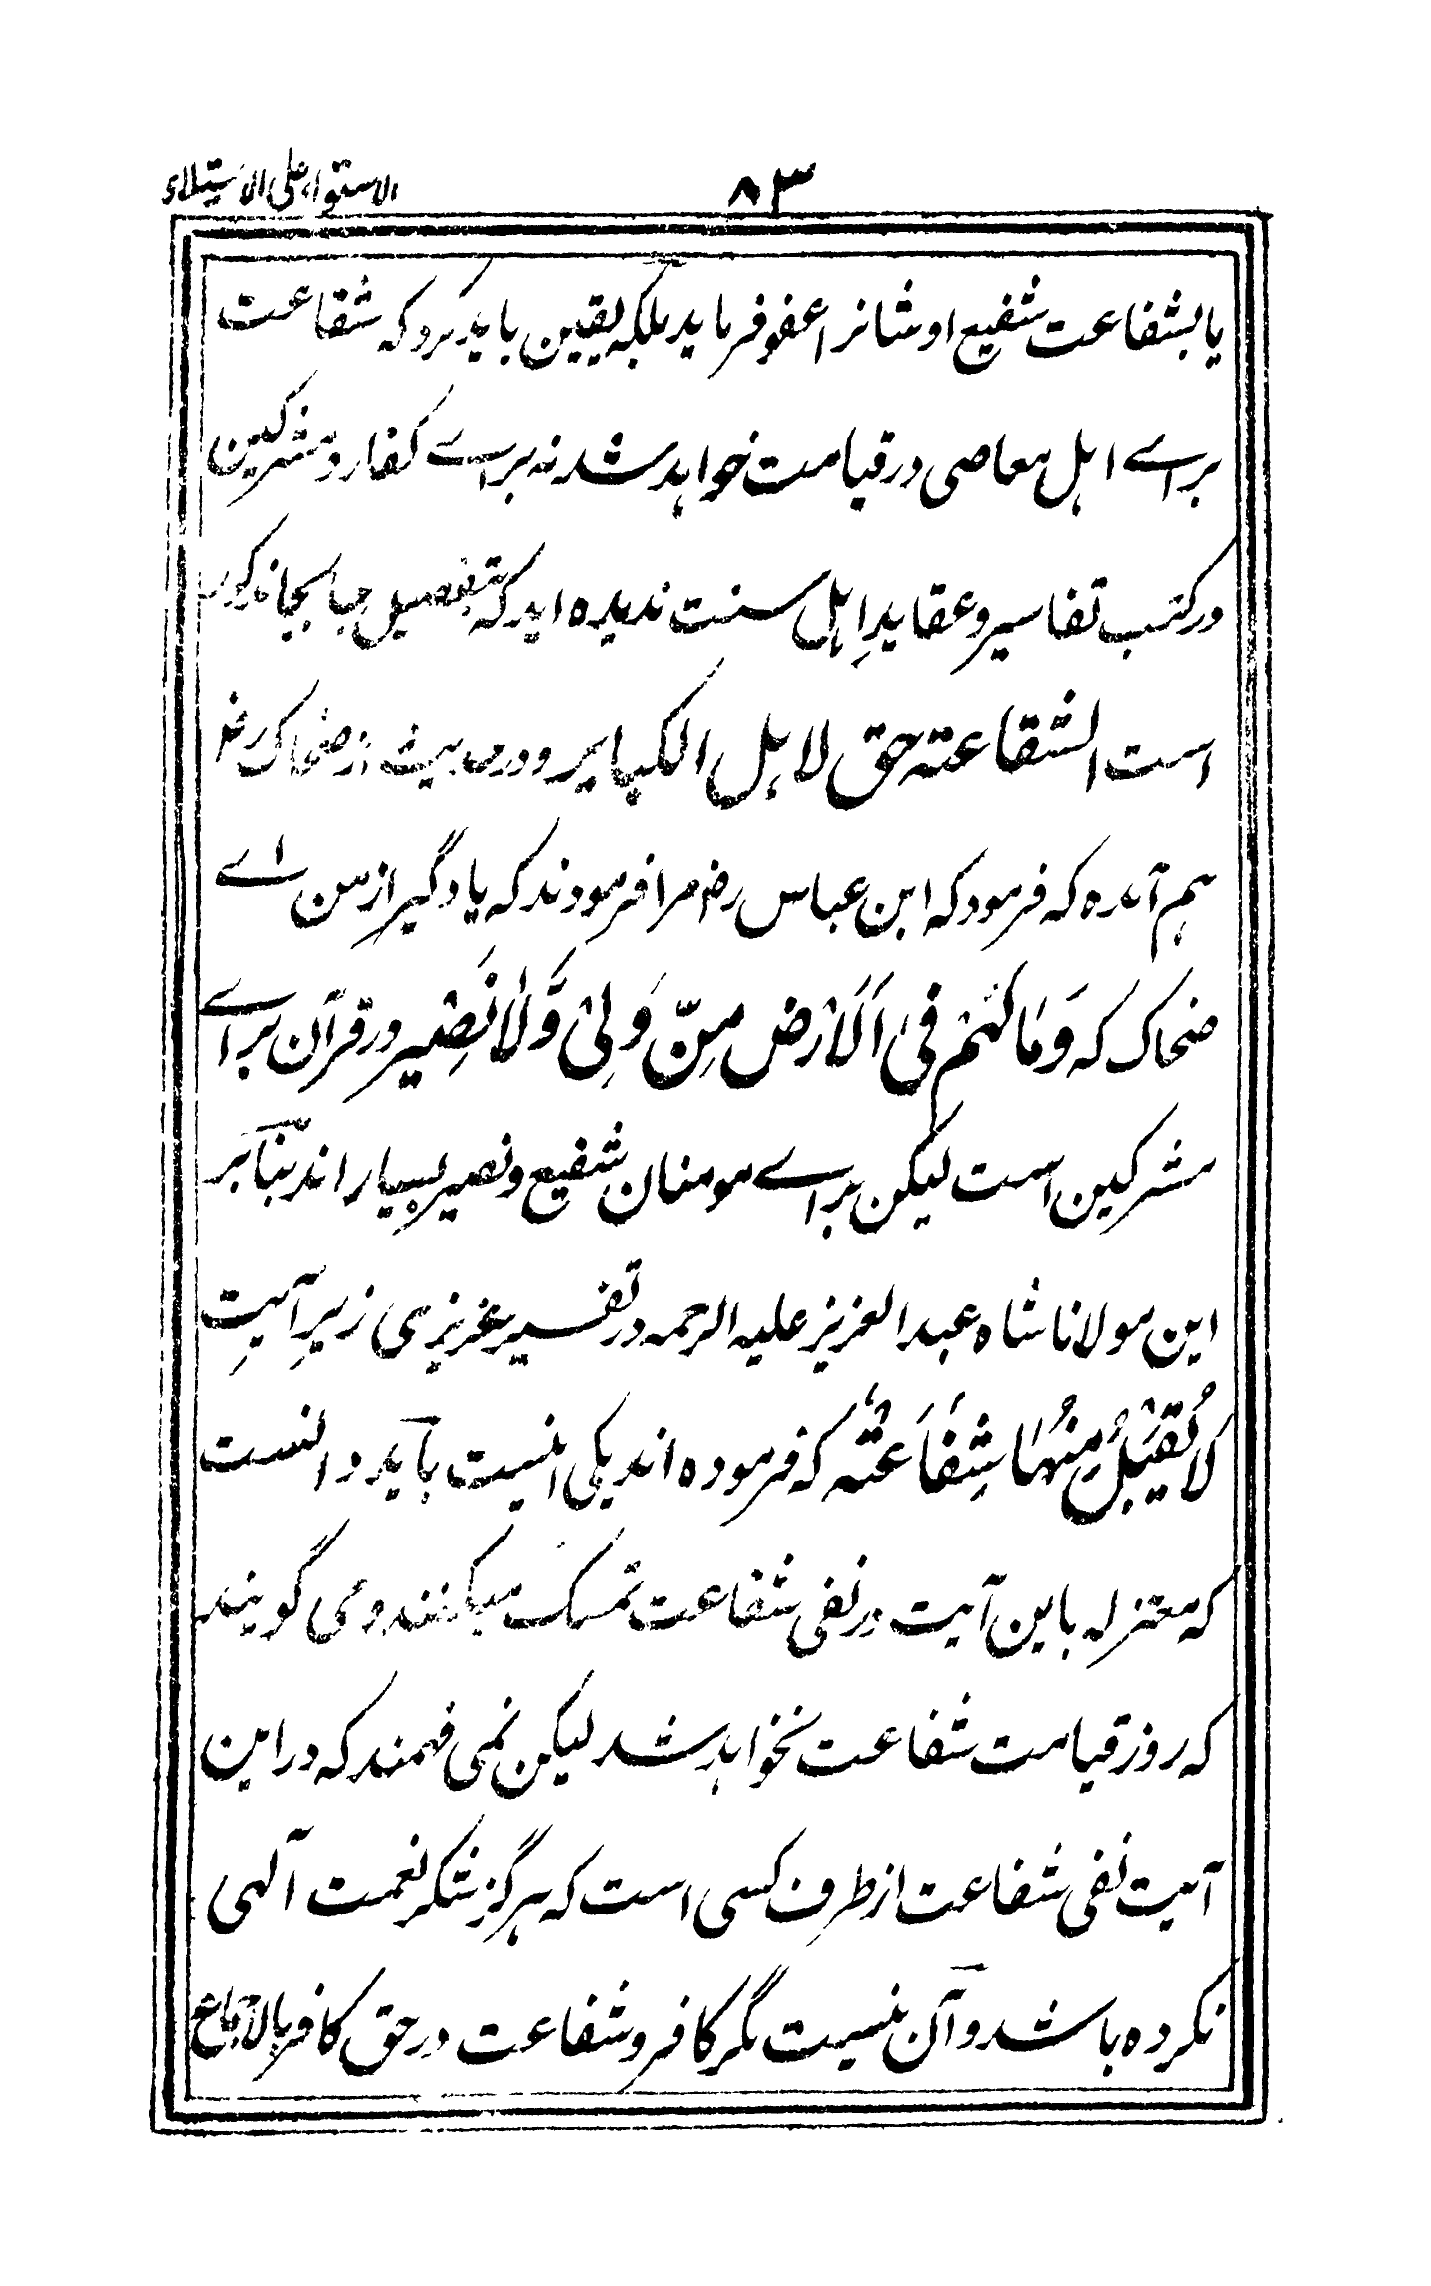 ۸۳
الاستواء علی الاستیلاء
یا بشفاعت شفیع اوشانرا عفو فرماید بلکه یقین باید کرد که شفاعت
براے اہل معاصی در قیامت خواہد شد نہ براے کفار و مشرکین
در کتب تفاسیر و عقایدِ اہل سنت ندیده اید که بتفصیل جابجا مذکور
است الشفاعته حق لاہل الکبایر و در حدیث از ضحاک رض
ہم آمده که فرمود که ابن عباس رض مرا فرمودند که یاد گیر از من اے
ضحاک که وَمَا لَهُمْ فِی اَلاَرْضِ مِنّ وَلِیْ وَّلَا نَصِیْر در قرآن براے
مشرکین است لیکن براے مومنان شفیع و نصیر بسیار اند بَنابَر
این مولانا شاه عبد العزیز علیہ الرحمہ در تفسیر عزیزی زیرِ آیتِ
لَا یُقْبَلُ مِنْهَا شَفَاعَتُہ که فرموده اند یکی اینست بآید دانست
که معتزلہ باین آیت در نفی شفاعت تمسک میکنند و می گویند
که روز قیامت شفاعت نخواہد شد لیکن نمی فہمند که در این
آیت نفی شفاعت از طرف کسی است که ہرگز شکر نعمت آلہی
نکرده باشد و آن نیست مگر کافر و شفاعت در حق کافر بالاجماع